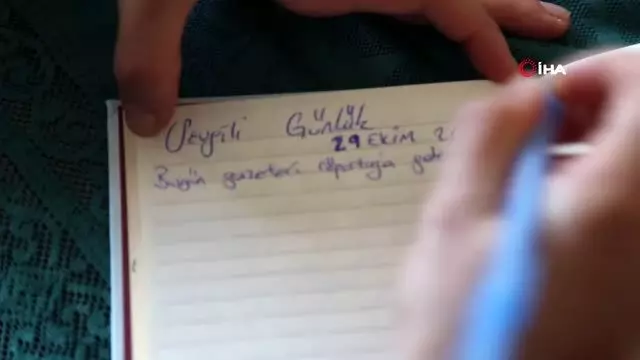 İHA
Sevgili Günlük
29 EKİM 2
Bugün gazeteci röportaja